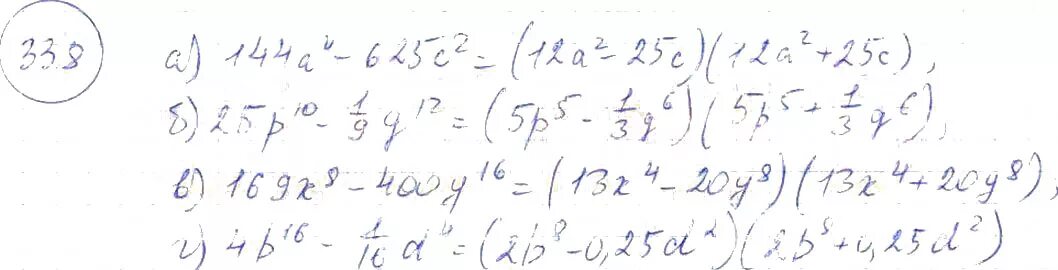 338 а) 144a⁴ - 625c² = (12a² - 25c)(12a² + 25c),
б) 25p¹⁰ - 1/9 g¹² = (5p⁵ - 1/3 g⁶)(5p⁵ + 1/3 g⁶),
в) 169x⁸ - 400y¹⁶ = (13x⁴ - 20y⁸)(13x⁴ + 20y⁸),
г) 4b¹⁶ - 1/16 d⁴ = (2b⁸ - 0,25d²)(2b⁸ + 0,25d²)